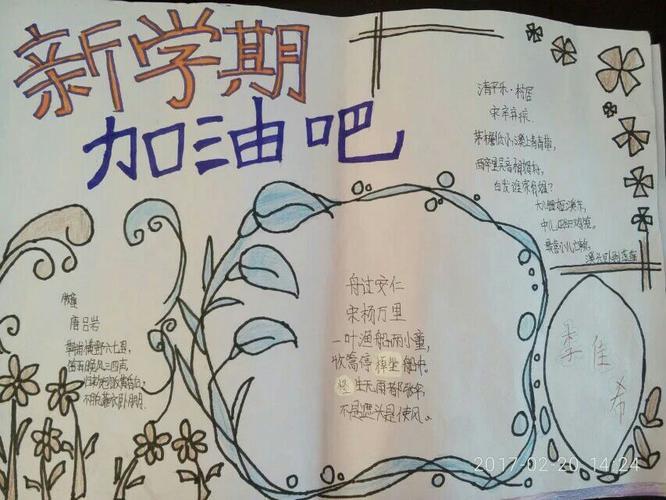 新学期
加油吧
清平乐·村居
宋辛弃疾
茅檐低小,溪上青青草,
醉里吴音相媚好,
白发谁家翁媪?
大儿锄豆溪东,
中儿正织鸡笼。
最喜小儿亡赖,
溪头卧剥莲蓬
舟过安仁
宋杨万里
一叶渔船两小童,
收篙停棹坐船中。
怪生无雨都张伞
不是遮头是使风。
牧童
唐吕岩
草铺横野六七里,
笛弄晚风三四声。
归来饱饭黄昏后,
不脱蓑衣卧月明。
李佳希
2017-02-20 14:24